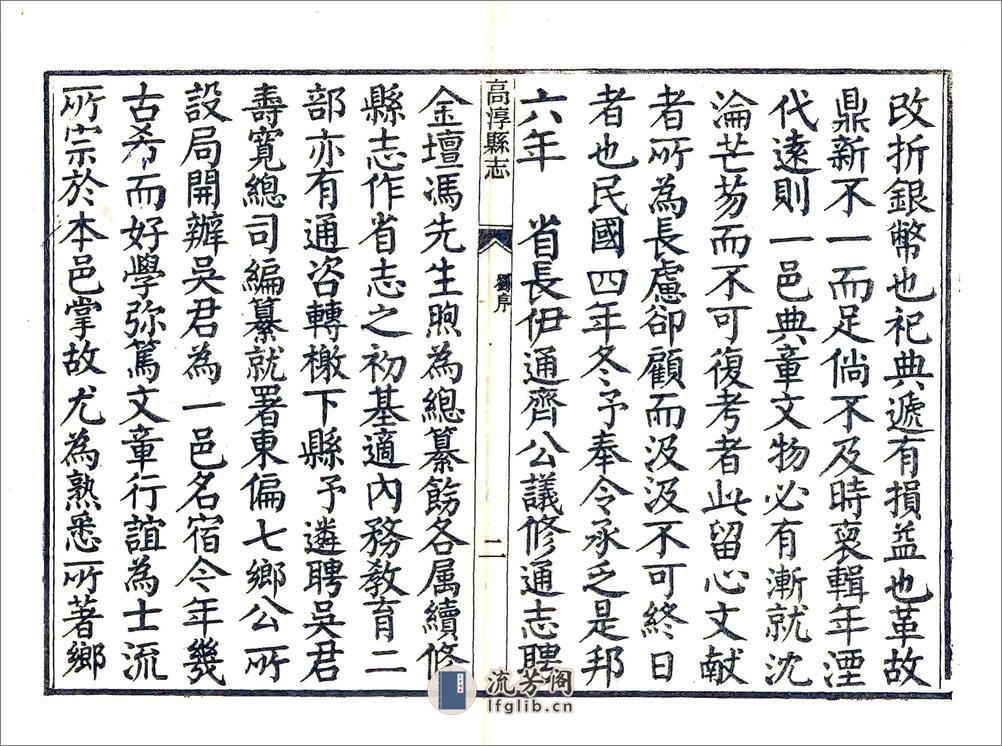 改折銀幣也祀典遞有損益也革故
鼎新不一而足倘不及時裒輯年湮
代遠則一邑典章文物必有漸就沈
淪芒芴而不可復考者此留心文献
者所為長慮卻顧而汲汲不可終日
者也民國四年冬予奉令承乏是邦
六年　省長伊通齊公議修通志聘
高淳縣志
劉序
二
金壇馮先生煦為總纂飭各属續修
縣志作省志之初基適內務教育二
部亦有通咨轉檄下縣予遴聘吳君
壽寬總司編纂就署東偏七鄉公所
設局開辦吳君為一邑名宿今年幾
古希而好學弥篤文章行誼為士流
所宗於本邑掌故尤為熟悉所著鄉
流芳阁
lfglib.cn